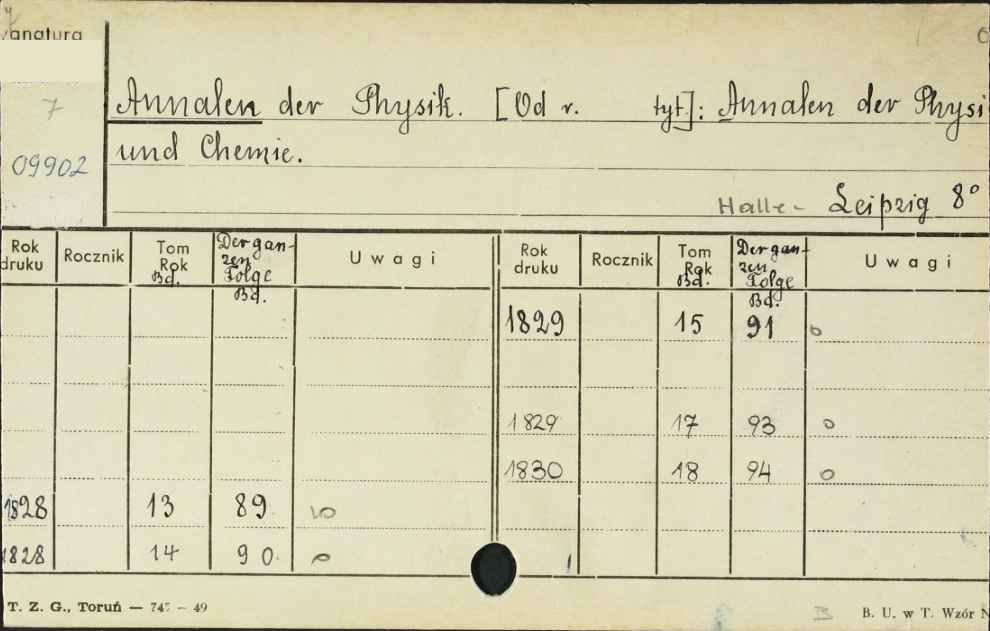 anatura
7
09902
Annalen der Physik. [Od r. tyt]: Annalen der Physi
und Chemie.
Halle - Leipzig 8°
Rok druku Rocznik Tom Rok Bd. Der ganzen Folge Bd. Uwagi Rok druku Rocznik Tom Rok Bd. Der ganzen Folge Bd. Uwagi
1829 15 91 o
1829 17 93 o
1830 18 94 o
1828 13 89 o
1828 14 90 o
T. Z. G., Toruń — 745 — 49
B. U. w T. Wzór N